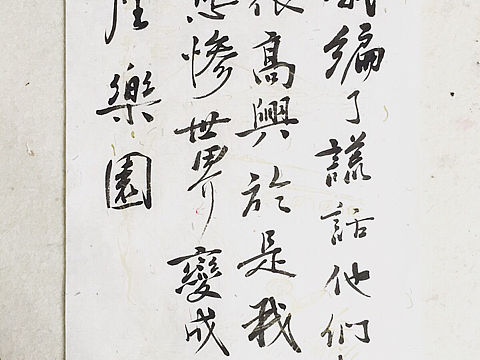 編了謊話他們
高興於是我
慘世界變成
樂園